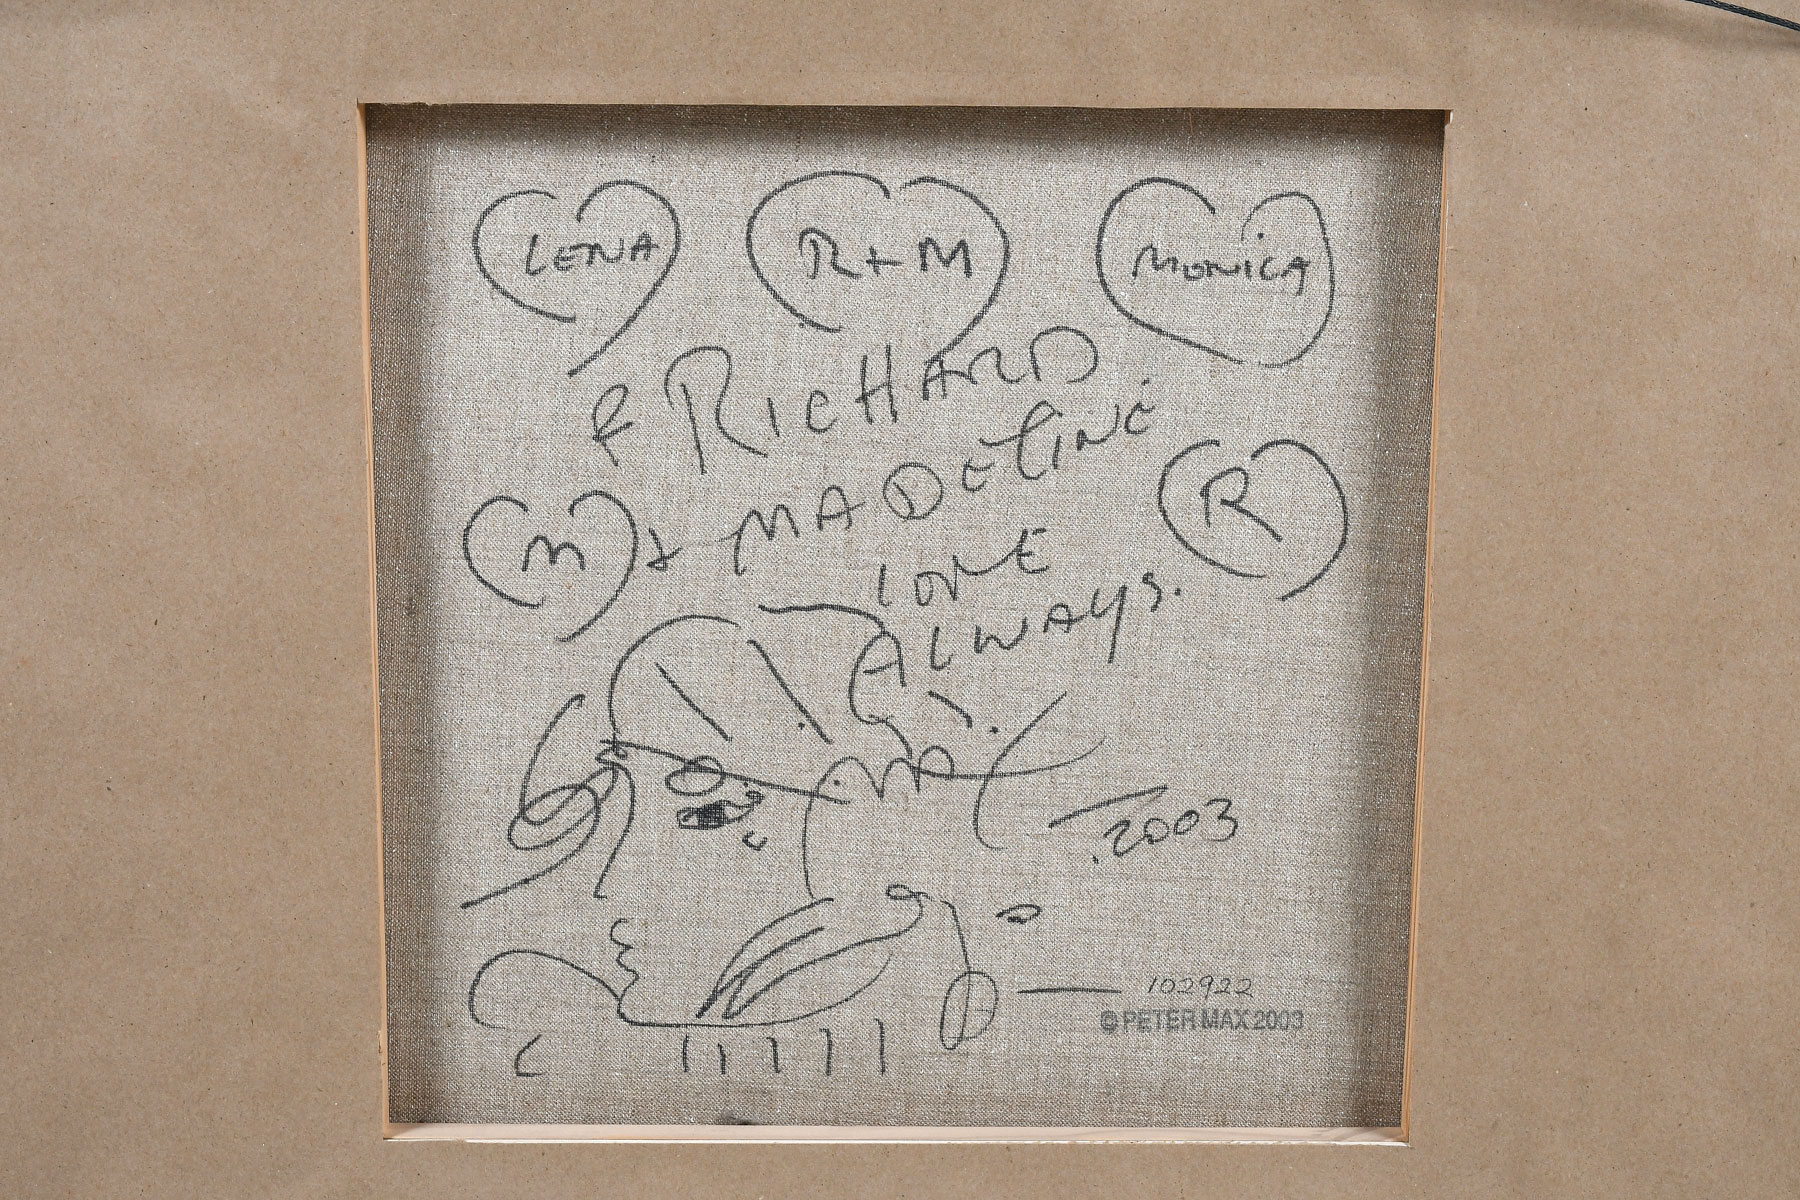 LENA
R + M
MONICA
& RICHARD
+ MADELINE
M
R
LOVE
ALWAYS.
Max
2003
102922
© PETER MAX 2003